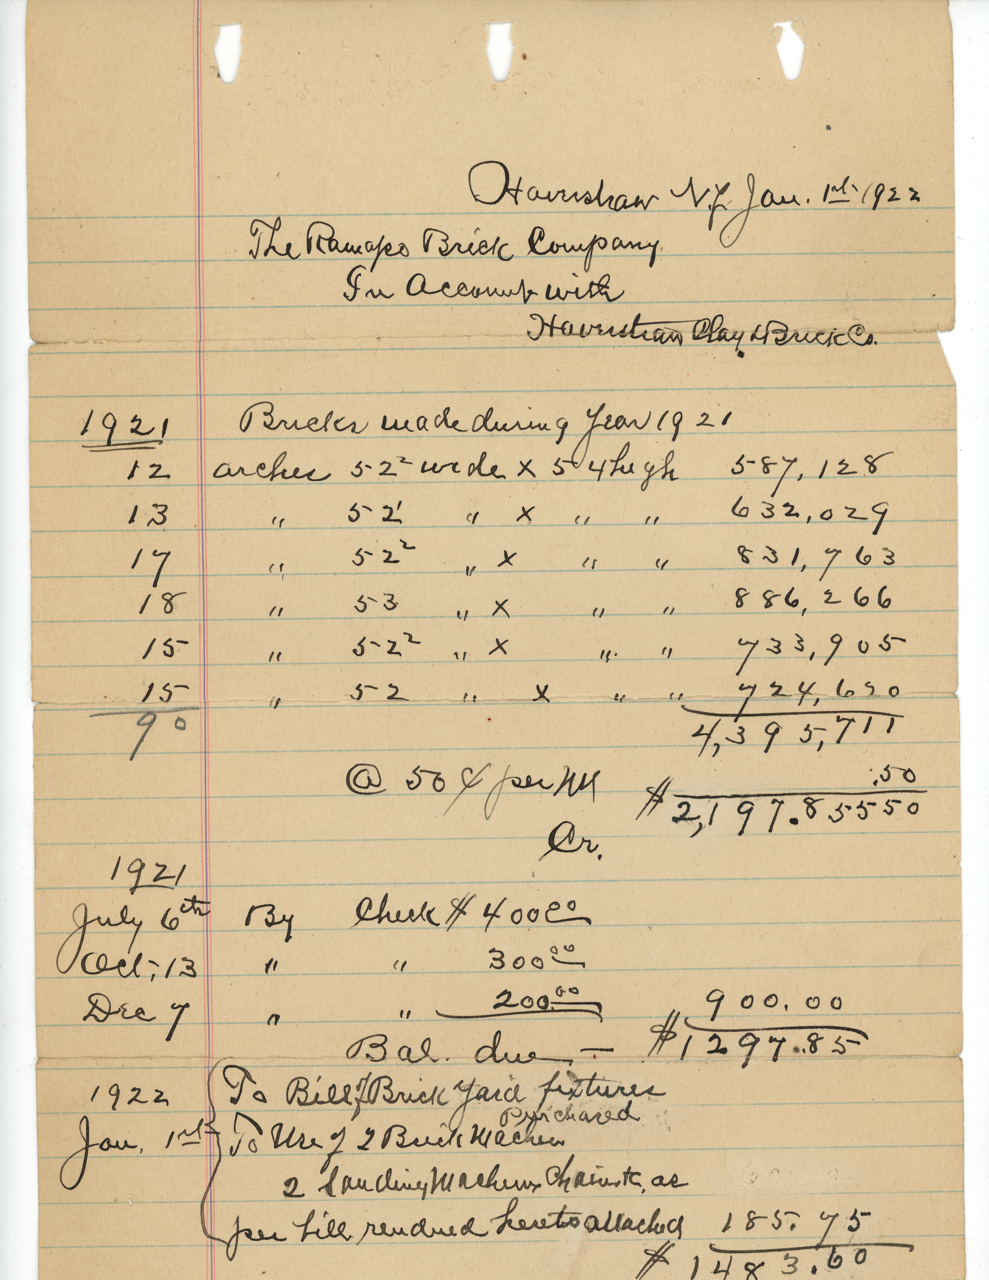 Haverstraw N.Y. Jan. 1st 1922
The Ramapo Brick Company
In Account with
Haverstraw Clay & Brick Co.
1921 Bricks made during Year 1921
12 arches 52² wide × 54 high 587,128
13 " 52' " × " " 632,029
17 " 52² " × " " 831,763
18 " 53 " × " " 886,266
15 " 52² " × " " 733,905
15 " 52 " × " " 724,620
90 4,395,711
@ 50 ¢ per M .50
$2,197.85550
Cr.
1921
July 6th By Check $400.00
Oct. 13 " " 300.00
Dec 7 " " 200.00 900.00
Bal. due — $1297.85
1922 To Bill of Brick Yard fixtures
Purchased
Jan. 1st To Use of 2 Brick Machines
2 Sanding Machines, as
per bill rendered hereto attached 185.75
$1483.60